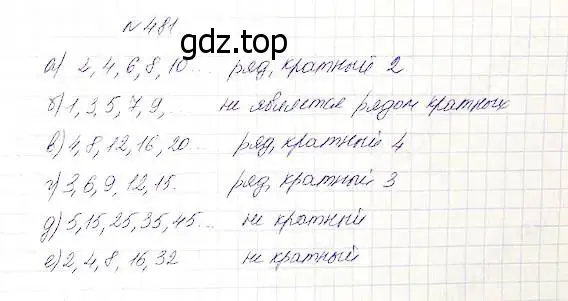 № 481
gdz.top
а) 2, 4, 6, 8, 10... ряд, кратный 2
б) 1, 3, 5, 7, 9, ... не является рядом кратных
в) 4, 8, 12, 16, 20... ряд, кратный 4
г) 3, 6, 9, 12, 15. ряд, кратный 3
д) 5, 15, 25, 35, 45... не кратный
е) 2, 4, 8, 16, 32 не кратный